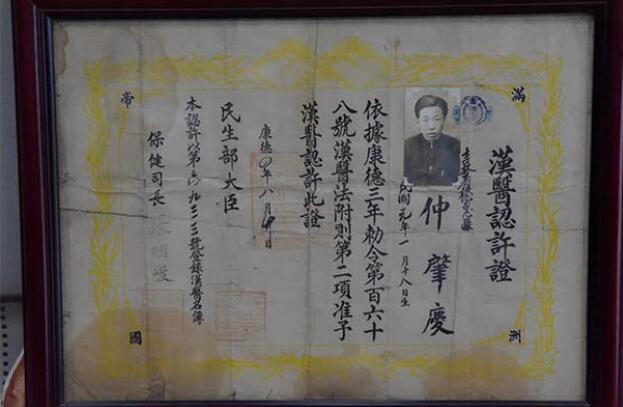 滿洲帝國
漢醫認許證
仲肇慶
民國元年一月十八日生
依據康德三年勅令第百六十
八號漢醫法附則第二項准予
漢醫認許此證
康德 年八月 日
民生部大臣
本認許以第 九三三號登錄漢醫名簿
保健司長 張明峻